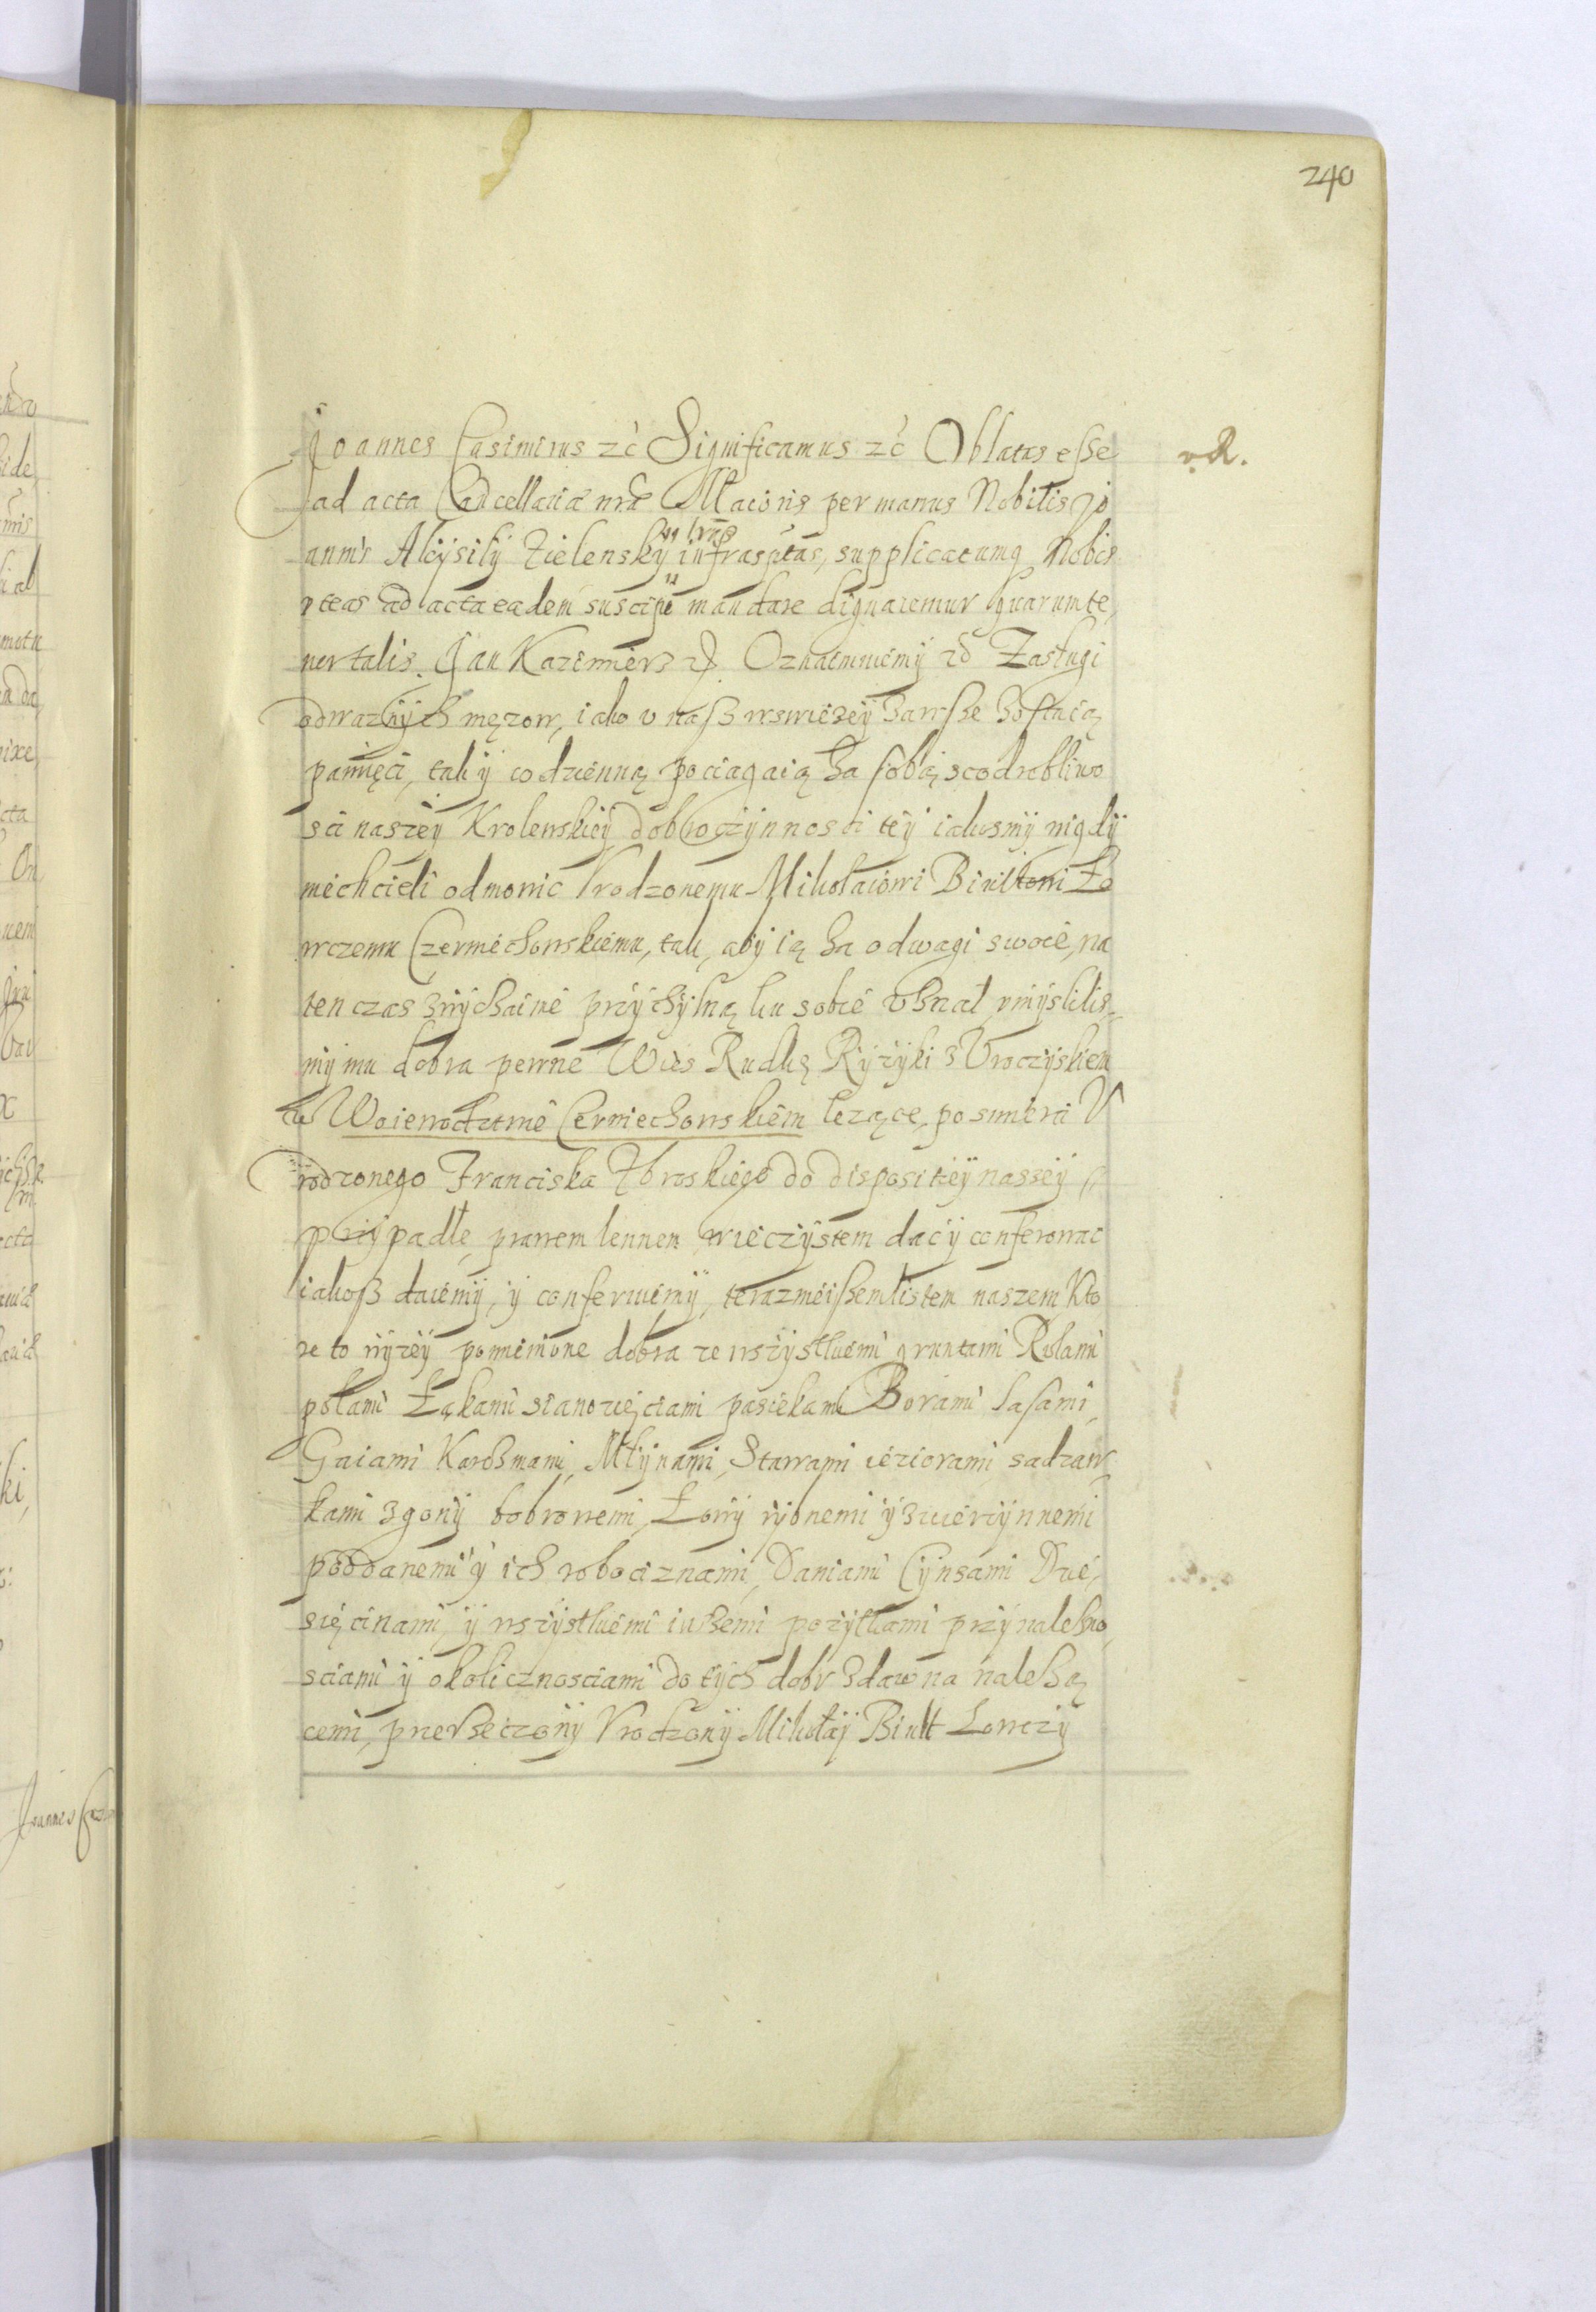 240
Joannes Casimirus zc Significamus zc Oblatas esse
v. R.
ad acta Cancellariae nrae Maioris per manus Nobilis Jo
annis Aloysii Zielensky lras infrasptas, supplicatumq Nobis
vt eas ad acta eadem suscipi mandare dignaremur quarum te,
nor talis. Jan Kazimierz Oznaimuiemÿ zc Zasługi
odwaznÿch męzow, iako v nass wswiezeÿ zawsze zostaią
pamięci, tak ÿ codzienną pociagaią za sobą scodrobliwo
sci naszeÿ Krolewskieÿ dobroczÿnnosci teÿ iakosmÿ nigdÿ
niechcieli odmowic Vrodzonemu Mikołaiowi Binltowi Ło
wczemu Czerniechowskiemu, tak, abÿ ią za odwagi swoie, na
ten czas zwÿchaine przÿchÿlną ku sobie vznał vmÿslilis,
mÿ mu dobra pewne Wies Rudkę Rÿzÿki z Vroczÿskiem
w Woiewodztwie Cerniechowskiem lezące, po smierci V
rodzonego Franciska Zbroskiego do dispositieÿ nasseÿ
przÿpadłe, prawem lennem wieczÿstem dac ÿ conferowac
iakoss daiemÿ, ÿ conferuiemÿ, terazmieiszem listem naszem Kto
re to wÿzeÿ pomienione dobra ze wszÿstkiemi gruntami Rolami
polami Łąkami sianozięciami pasiekami Borami Lasami,
Gaiami Karczmami, Młÿnami, Stawami ieziorami sadzaw,
kami zgonÿ bobrowemi, Łowÿ rÿbnemi ÿ zwierzÿnnemi
poddanemi ÿ ich robociznami, Daniami Cÿnsami Dzie,
sięcinami, ÿ wszÿstkiemi inszemi pozÿtkami przÿnalezno,
sciami ÿ okolicznosciami do tÿch dobr zdawna nalezą
cemi, przerzeczonÿ Vrodzonÿ Mikołaÿ Binlt Łowczÿ